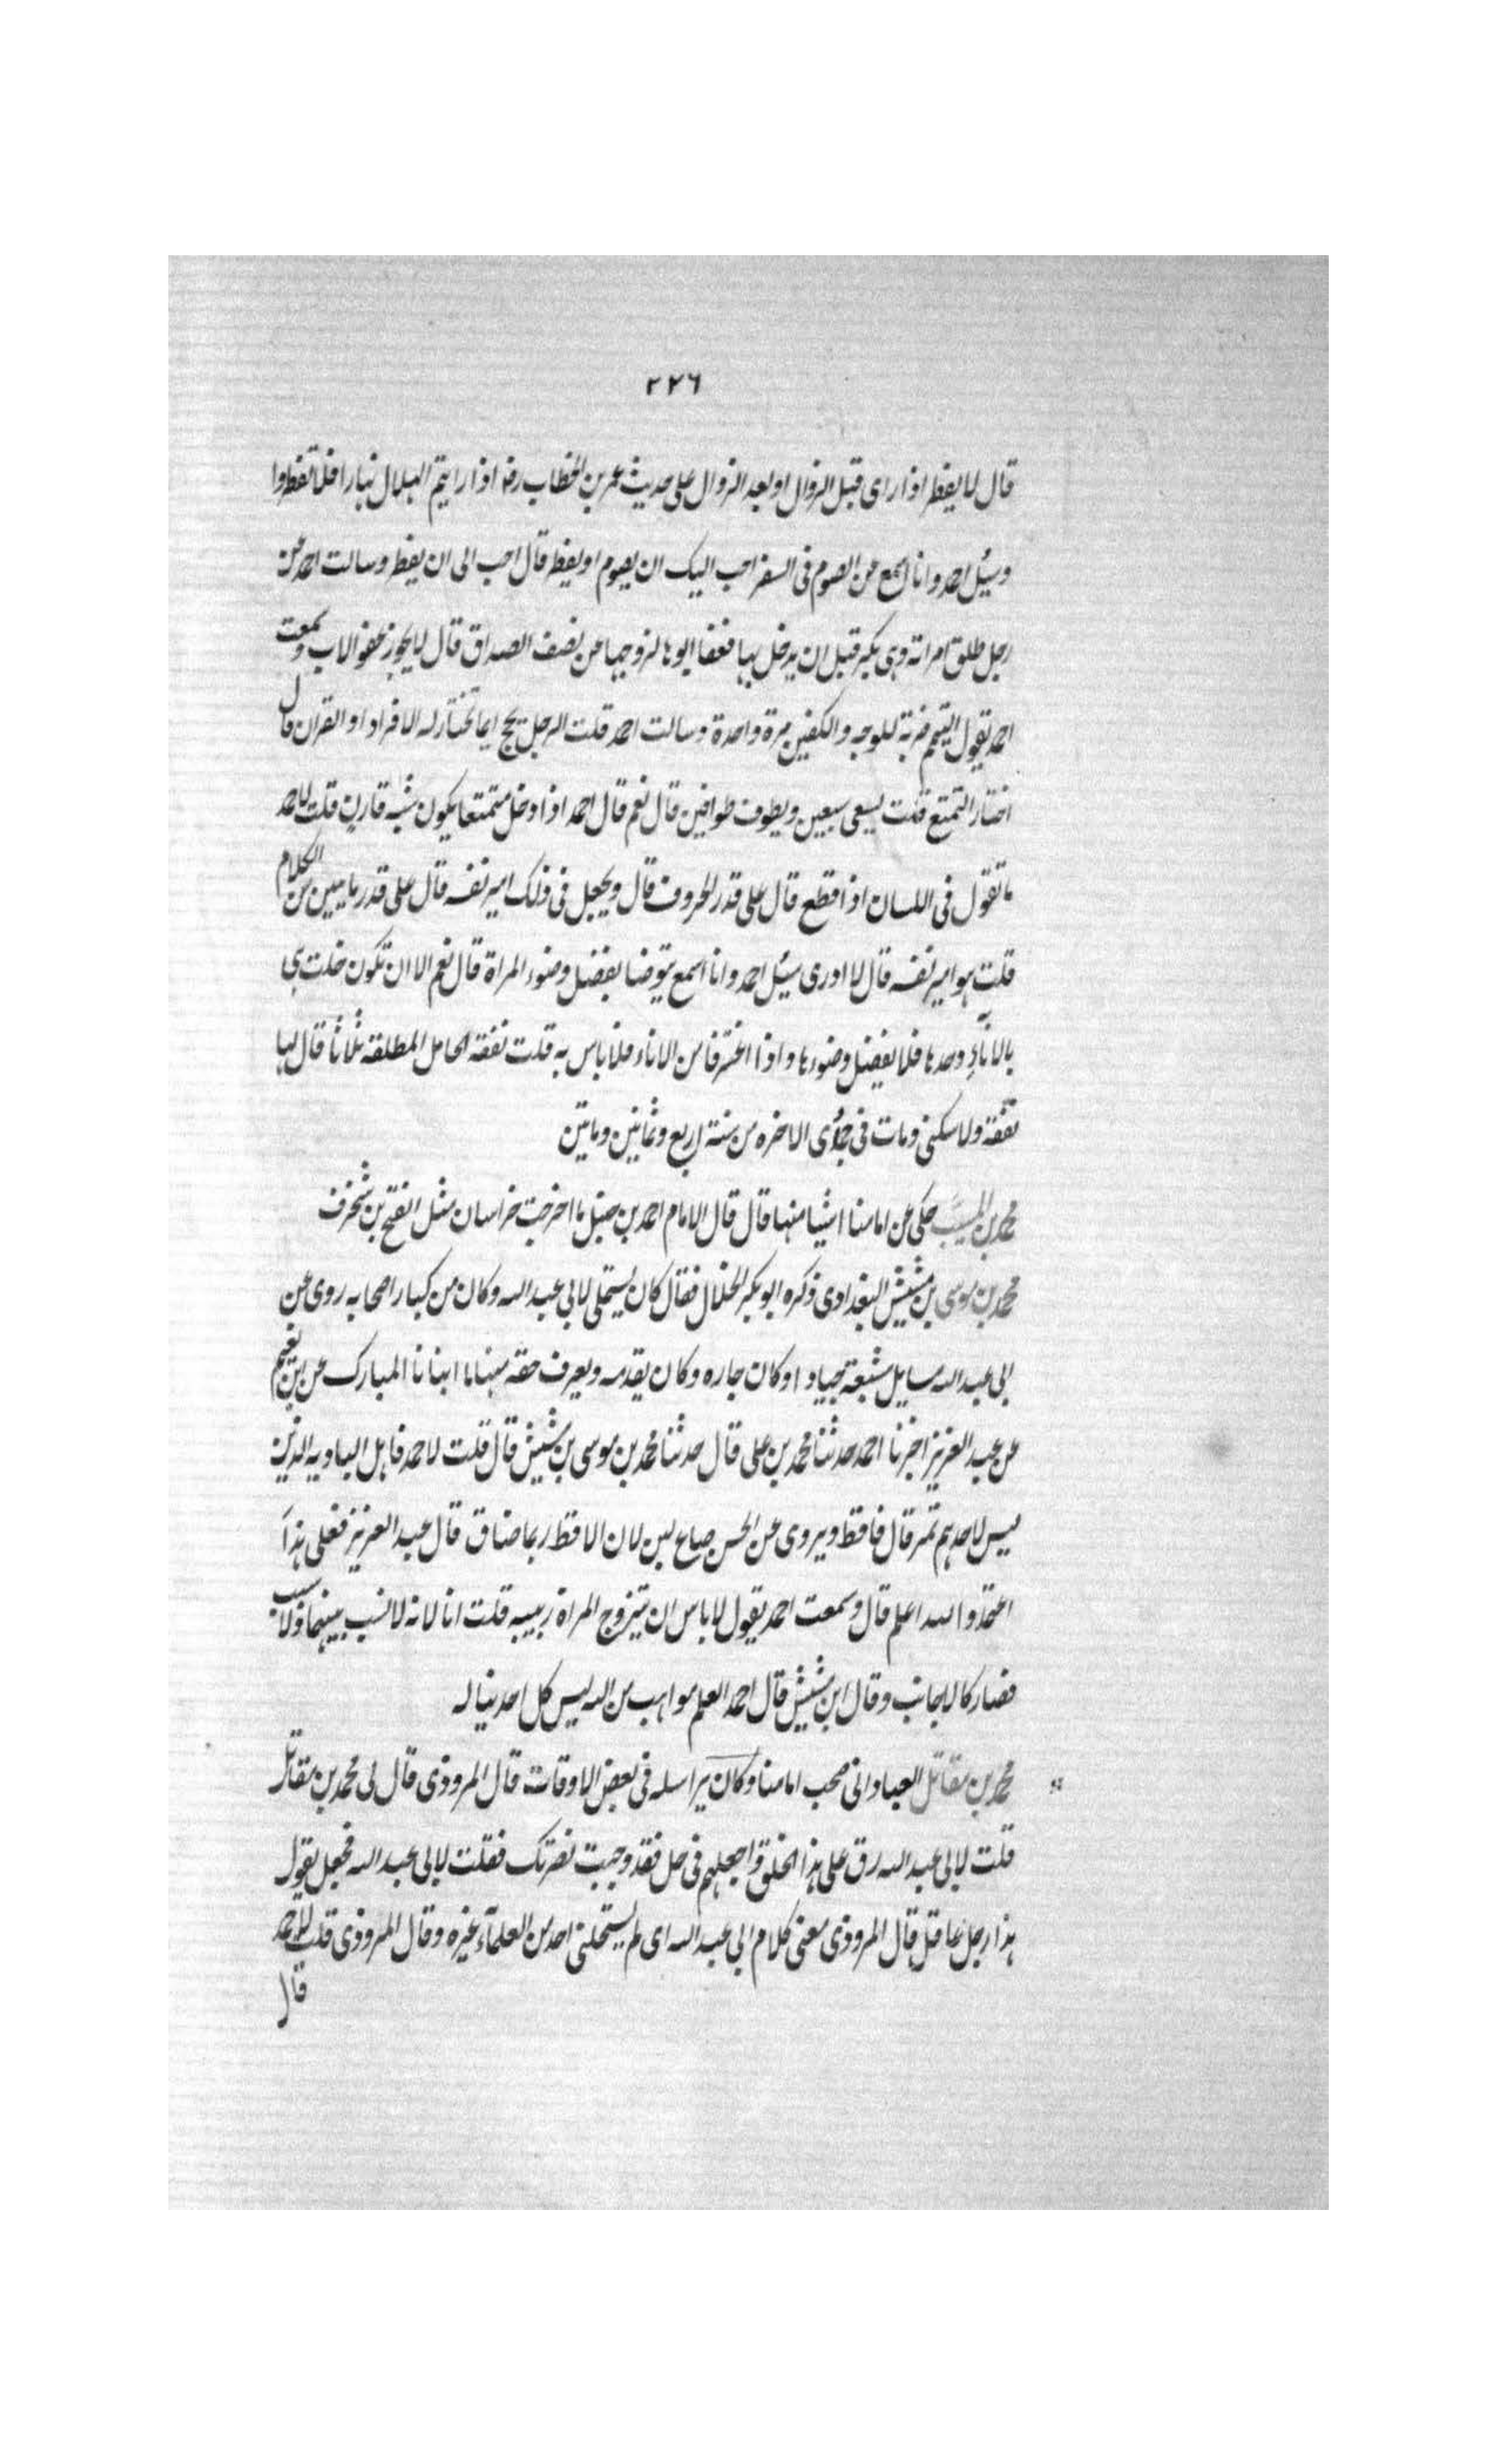 ٢٢٦
قال لا يفطر اذا راى قبل الزوال او بعد الزوال على حديث عمر بن الخطاب رضه اذا رايتم الهلال نهارا فلا تفطروا
وسئل احمد وانا اسمع عن الصوم فى السفر احب اليك ان يصوم او يفطر قال احب الى ان يفطر وسالت احمد عن
رجل طلق امراته وهى بكر قبل ان يدخل بها فعفا ابوها لزوجها عن نصف الصداق قال لا يجوز عفو الاب وسمعت
احمد يقول التيمم ضربة للوجه والكفين مرة واحدة وسالت احمد قلت الرجل يحج ايما تختار له الافراد او القران قال
اختار التمتع قلت يسعى سعيين ويطوف طوافين قال نعم قال احمد اذا دخل متمتعا يكون شبه قارن قلت لاحمد
ما تقول فى اللسان اذا قطع قال على قدر الحروف قال ويجعل فى ذلك امير نفسه قال على قدر ما يبين من الكلام
قلت هو امير نفسه قال لا ادرى سئل احمد وانا اسمع يتوضا بفضل وضوء المراة قال نعم الا ان تكون خلت هى
بالاناء وحدها فلا بفضل وضوءها واذا اغترفا من الاناء فلا باس به قلت نفقة الحامل المطلقة ثلاثا قال لها
نفقة ولا سكنى ومات فى جمادى الاخره من سنة اربع وثمانين وماتين
محمد بن المسيب حكى عن امامنا اشيا منها قال قال الامام احمد بن حنبل ما اخرجت خراسان مثل الفتح بن شخرف
محمد بن موسى بن مشيش البغدادى ذكره ابو بكر الخلال فقال كان يستملى لابى عبد الله وكان من كبار اصحابه روى عن
ابى عبد الله مسايل مشبعة جيادا وكان جاره وكان يقدمه ويعرف حقه منها ما انبانا المبارك عن ابن نعيم
عن عبد العزيز اخبرنا احمد حدثنا محمد بن على قال حدثنا محمد بن موسى بن مشيش قال قلت لاحمد فاهل الباديه الذين
ليس لاحدهم تمر قال فاقط ويروى عن الحسن صاع لبن لان الاقط ربما ضاق قال عبد العزيز فعلى هذا
اعتمد والله اعلم قال وسمعت احمد يقول لا باس ان يتزوج المراة ربيبه قلت انا لانه لا نسب بينهما ولا سبب
فصار كالاجانب وقال ابن مشيش قال احمد العلم مواهب من الله ليس كل احد يناله
محمد بن مقاتل العباداني صحب امامنا وكان يراسله فى بعض الاوقات قال المروذى قال لى محمد بن مقاتل
قلت لابى عبد الله رق على هذا الخلق واجعلهم فى حل فقد وجبت نصرتك فقلت لابى عبد الله فجعل يقول
هذا رجل عاقل قال المروذى معنى كلام ابى عبد الله اى لم يستحلنى احد من العلماء غيره وقال المروذى قلت لاحمد
قال